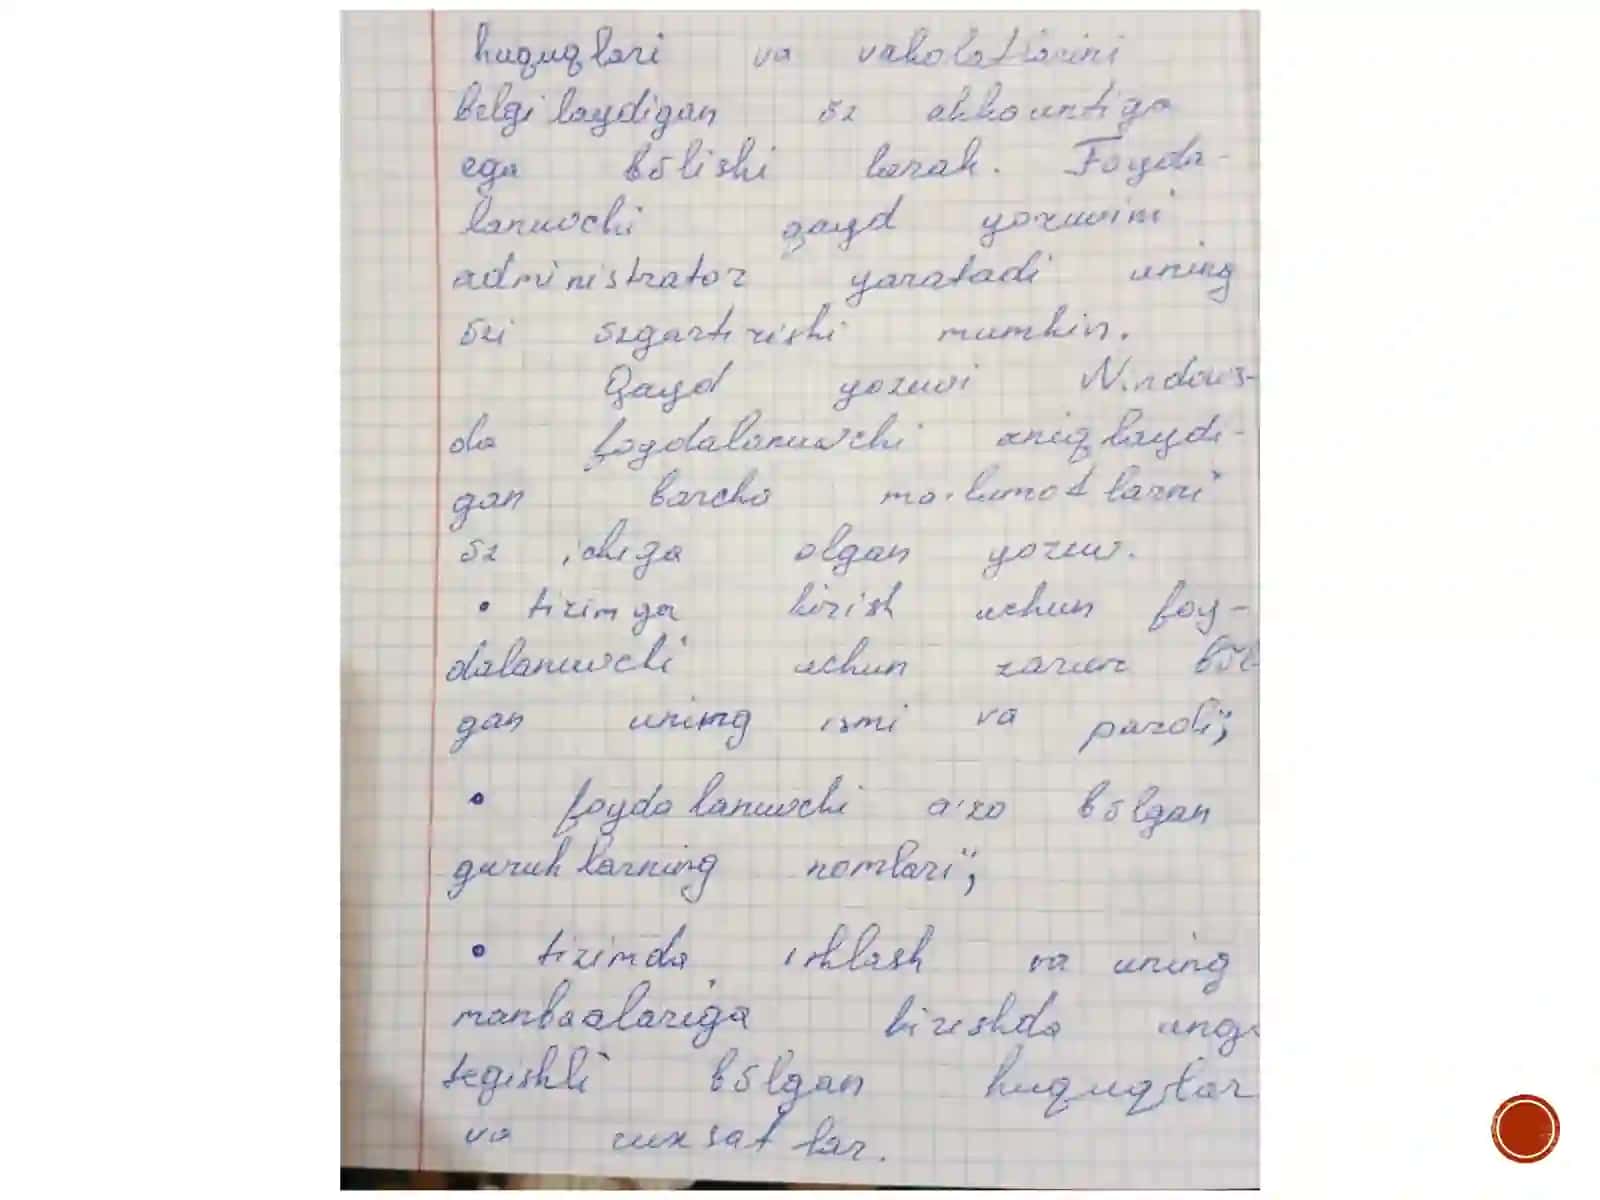 huquqlari va vakolatlarini
belgilaydigan õz akkountiga
ega bõlishi kerak. Foyda-
lanuvchi qayd yozuvini
administrator yaratadi uning
õzi õzgartirishi mumkin.
Qayd yozuvi Windows-
da foydalanuvchi aniqlaydi-
gan barcha ma'lumotlarni
õz ichiga olgan yozuv.
• tizimga kirish uchun foy-
dalanuvchi uchun zarur bõl
gan uning ismi va paroli";
• foydalanuvchi a'zo bõlgan
guruhlarning nomlari";
• tizimda ishlash va uning
manbaalariga kirishda unga
tegishli bõlgan huquqlar
va ruxsatlar.